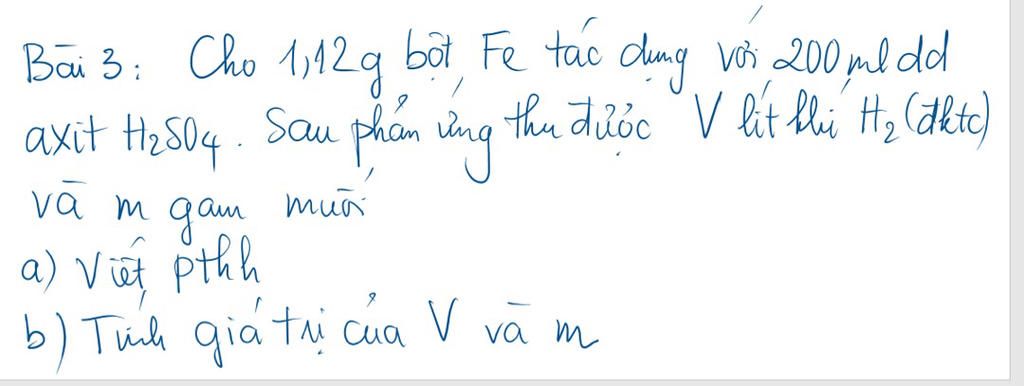 Bài 3: Cho 1,12g bột Fe tác dụng với 200 ml dd
axit H₂SO₄. Sau phản ứng thu được V lít khí H₂ (đktc)
và m gam muối
a) Viết pthh
b) Tính giá trị của V và m